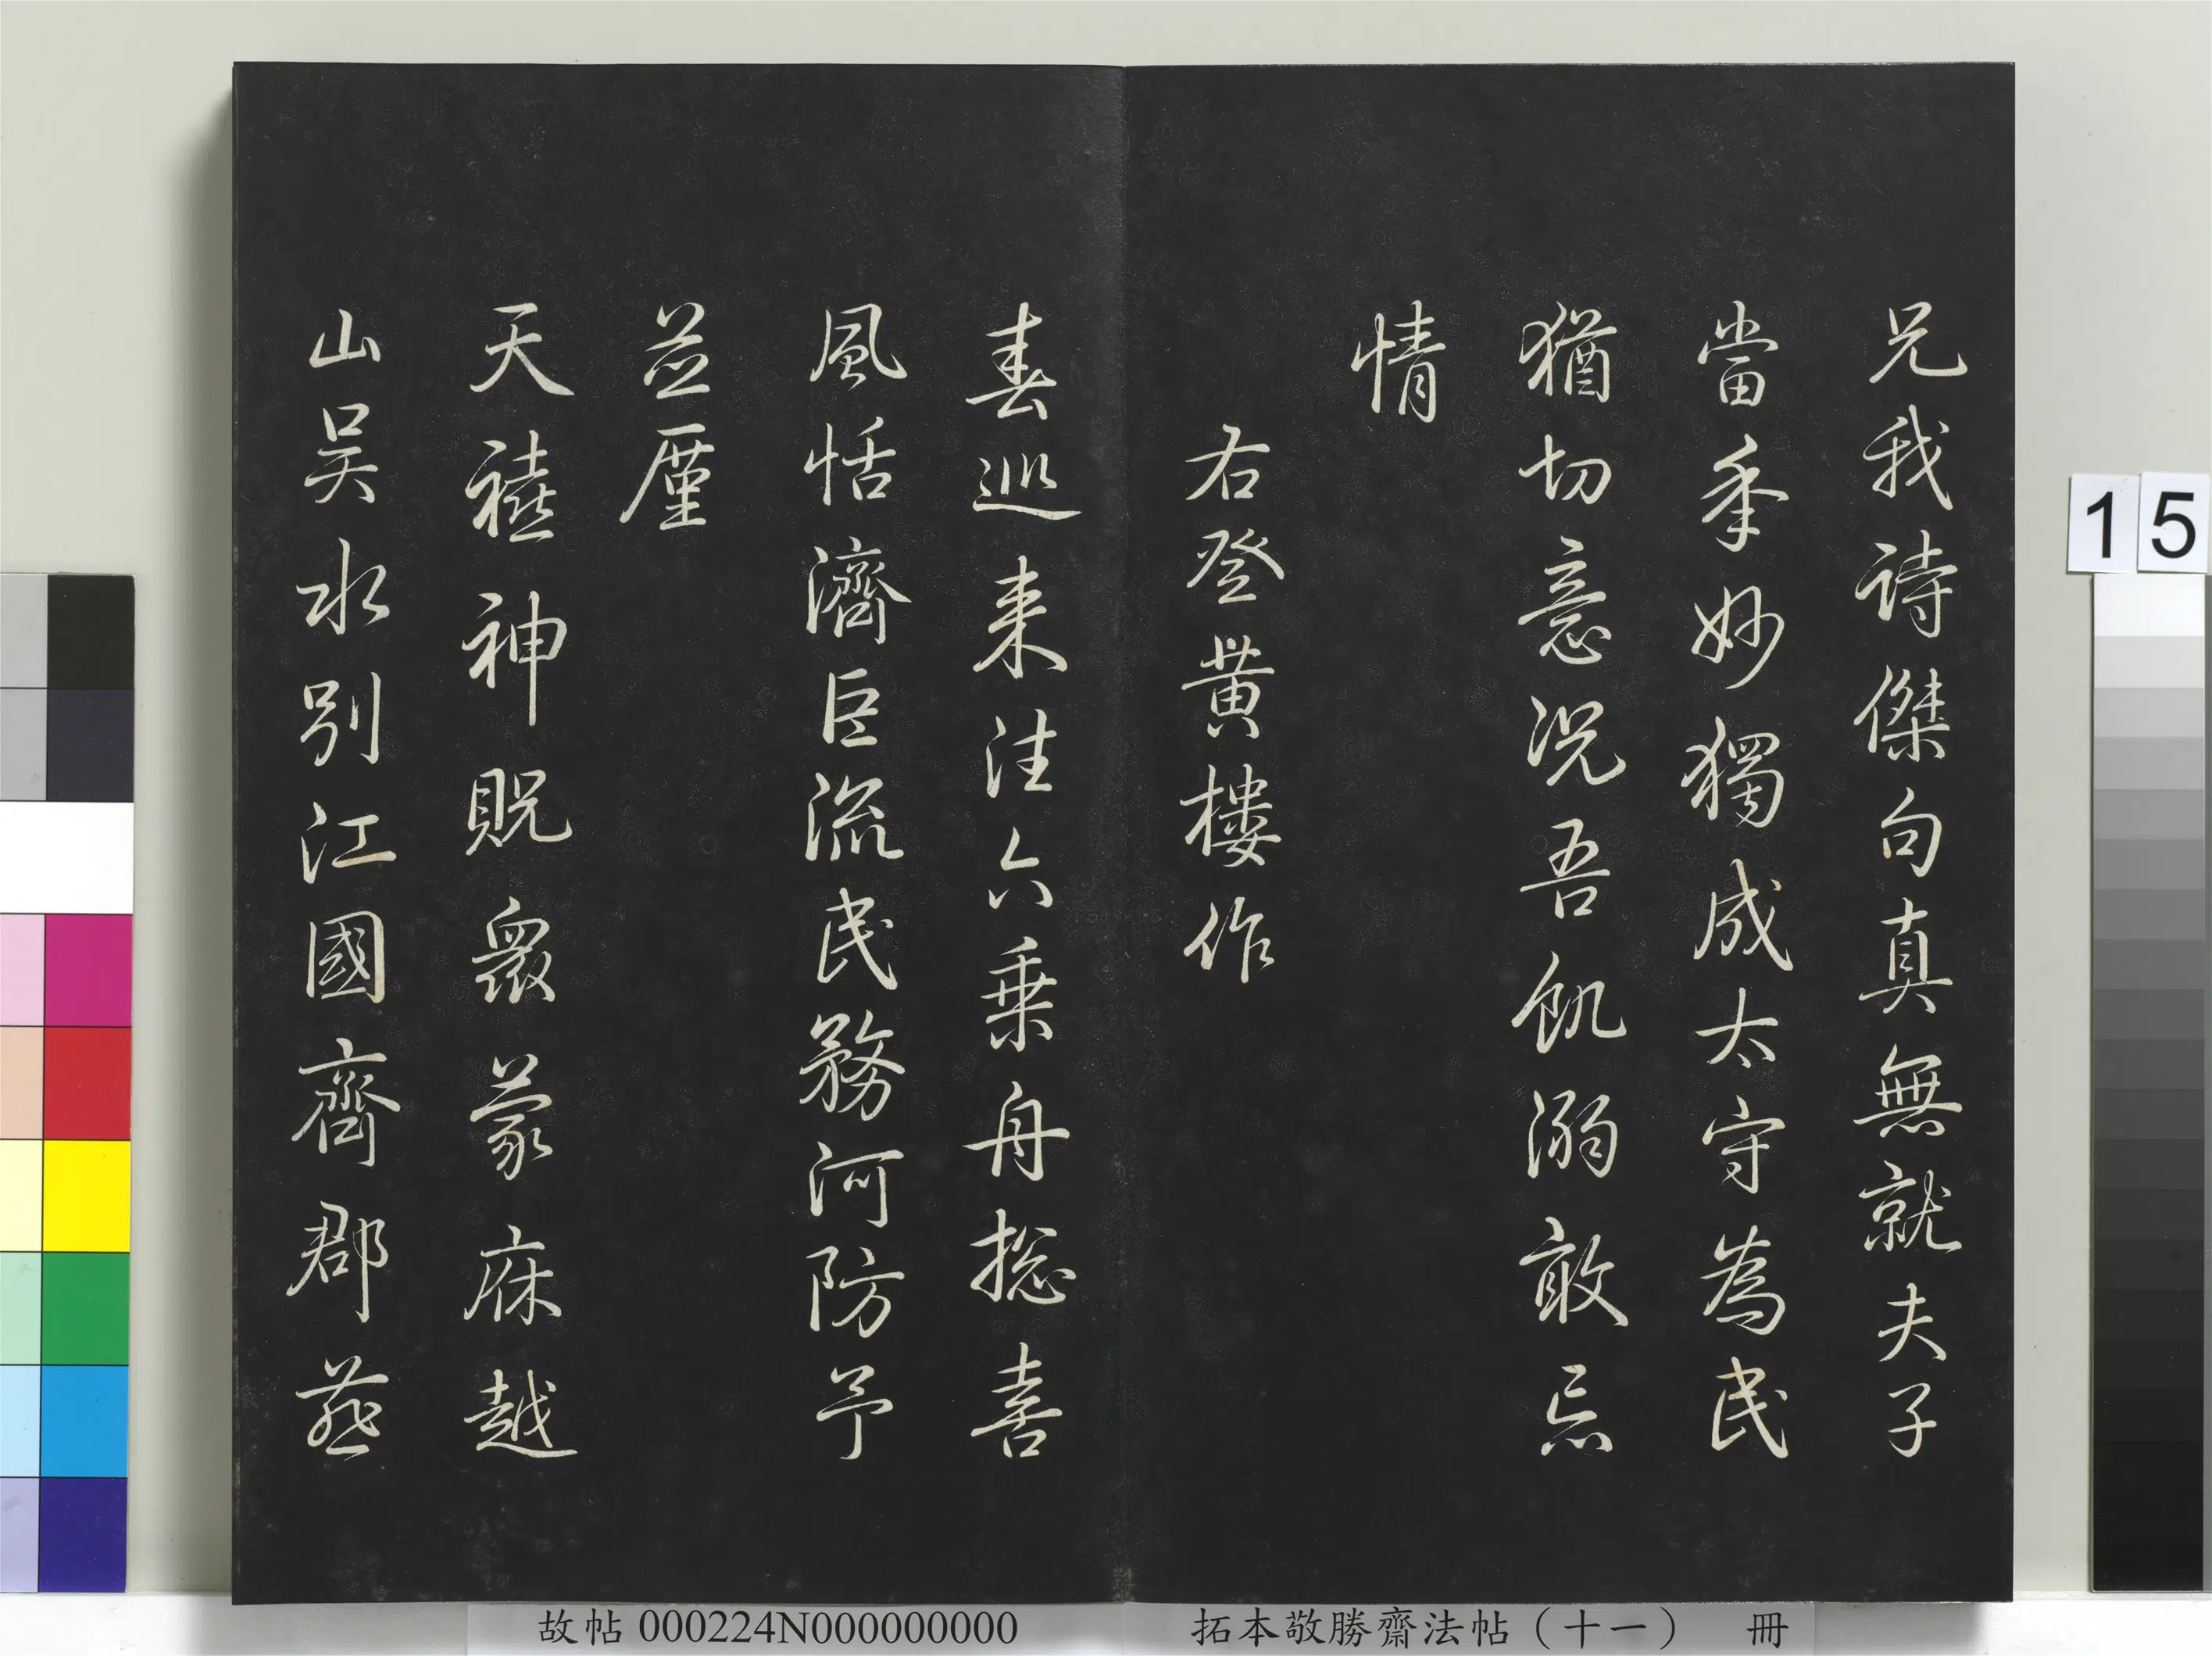 兄我詩傑句真無就夫子
當秊妙獨成太守為民
猶切意況吾飢溺敢忘
情
右登黃樓作
春巡来往六乗舟揔喜
風恬濟巨流民務河防予
並廑
天禧神貺衆蒙庥越
山吴水別江國齊郡燕
15
故帖 000224N000000000
拓本敬勝齋法帖（十一） 冊